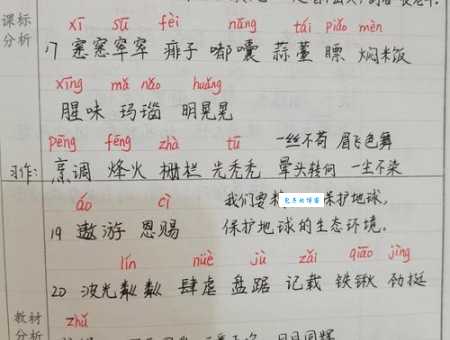 课标
分析
xī sū fèi nāng tái piǎo mèn
17 窸窸窣窣 痱子 嘟囔 蒜薹 瞟 焖米饭
xīng mǎ nǎo huǎng
腥味 玛瑙 明晃晃
pēng fēng zhà tū 一丝不苟 眉飞色舞
习作: 烹调 烽火 栅栏 光秃秃 晕头转向 一尘不染
áo cì 我们要 保护地球,
19 遨游 恩赐 保护地球的生态环境.
lín nüè jù zǎi qiāo jìng
20 波光粼粼 肆虐 盘踞 记载 铁锹 劲挺
教材 zhǔ
分析